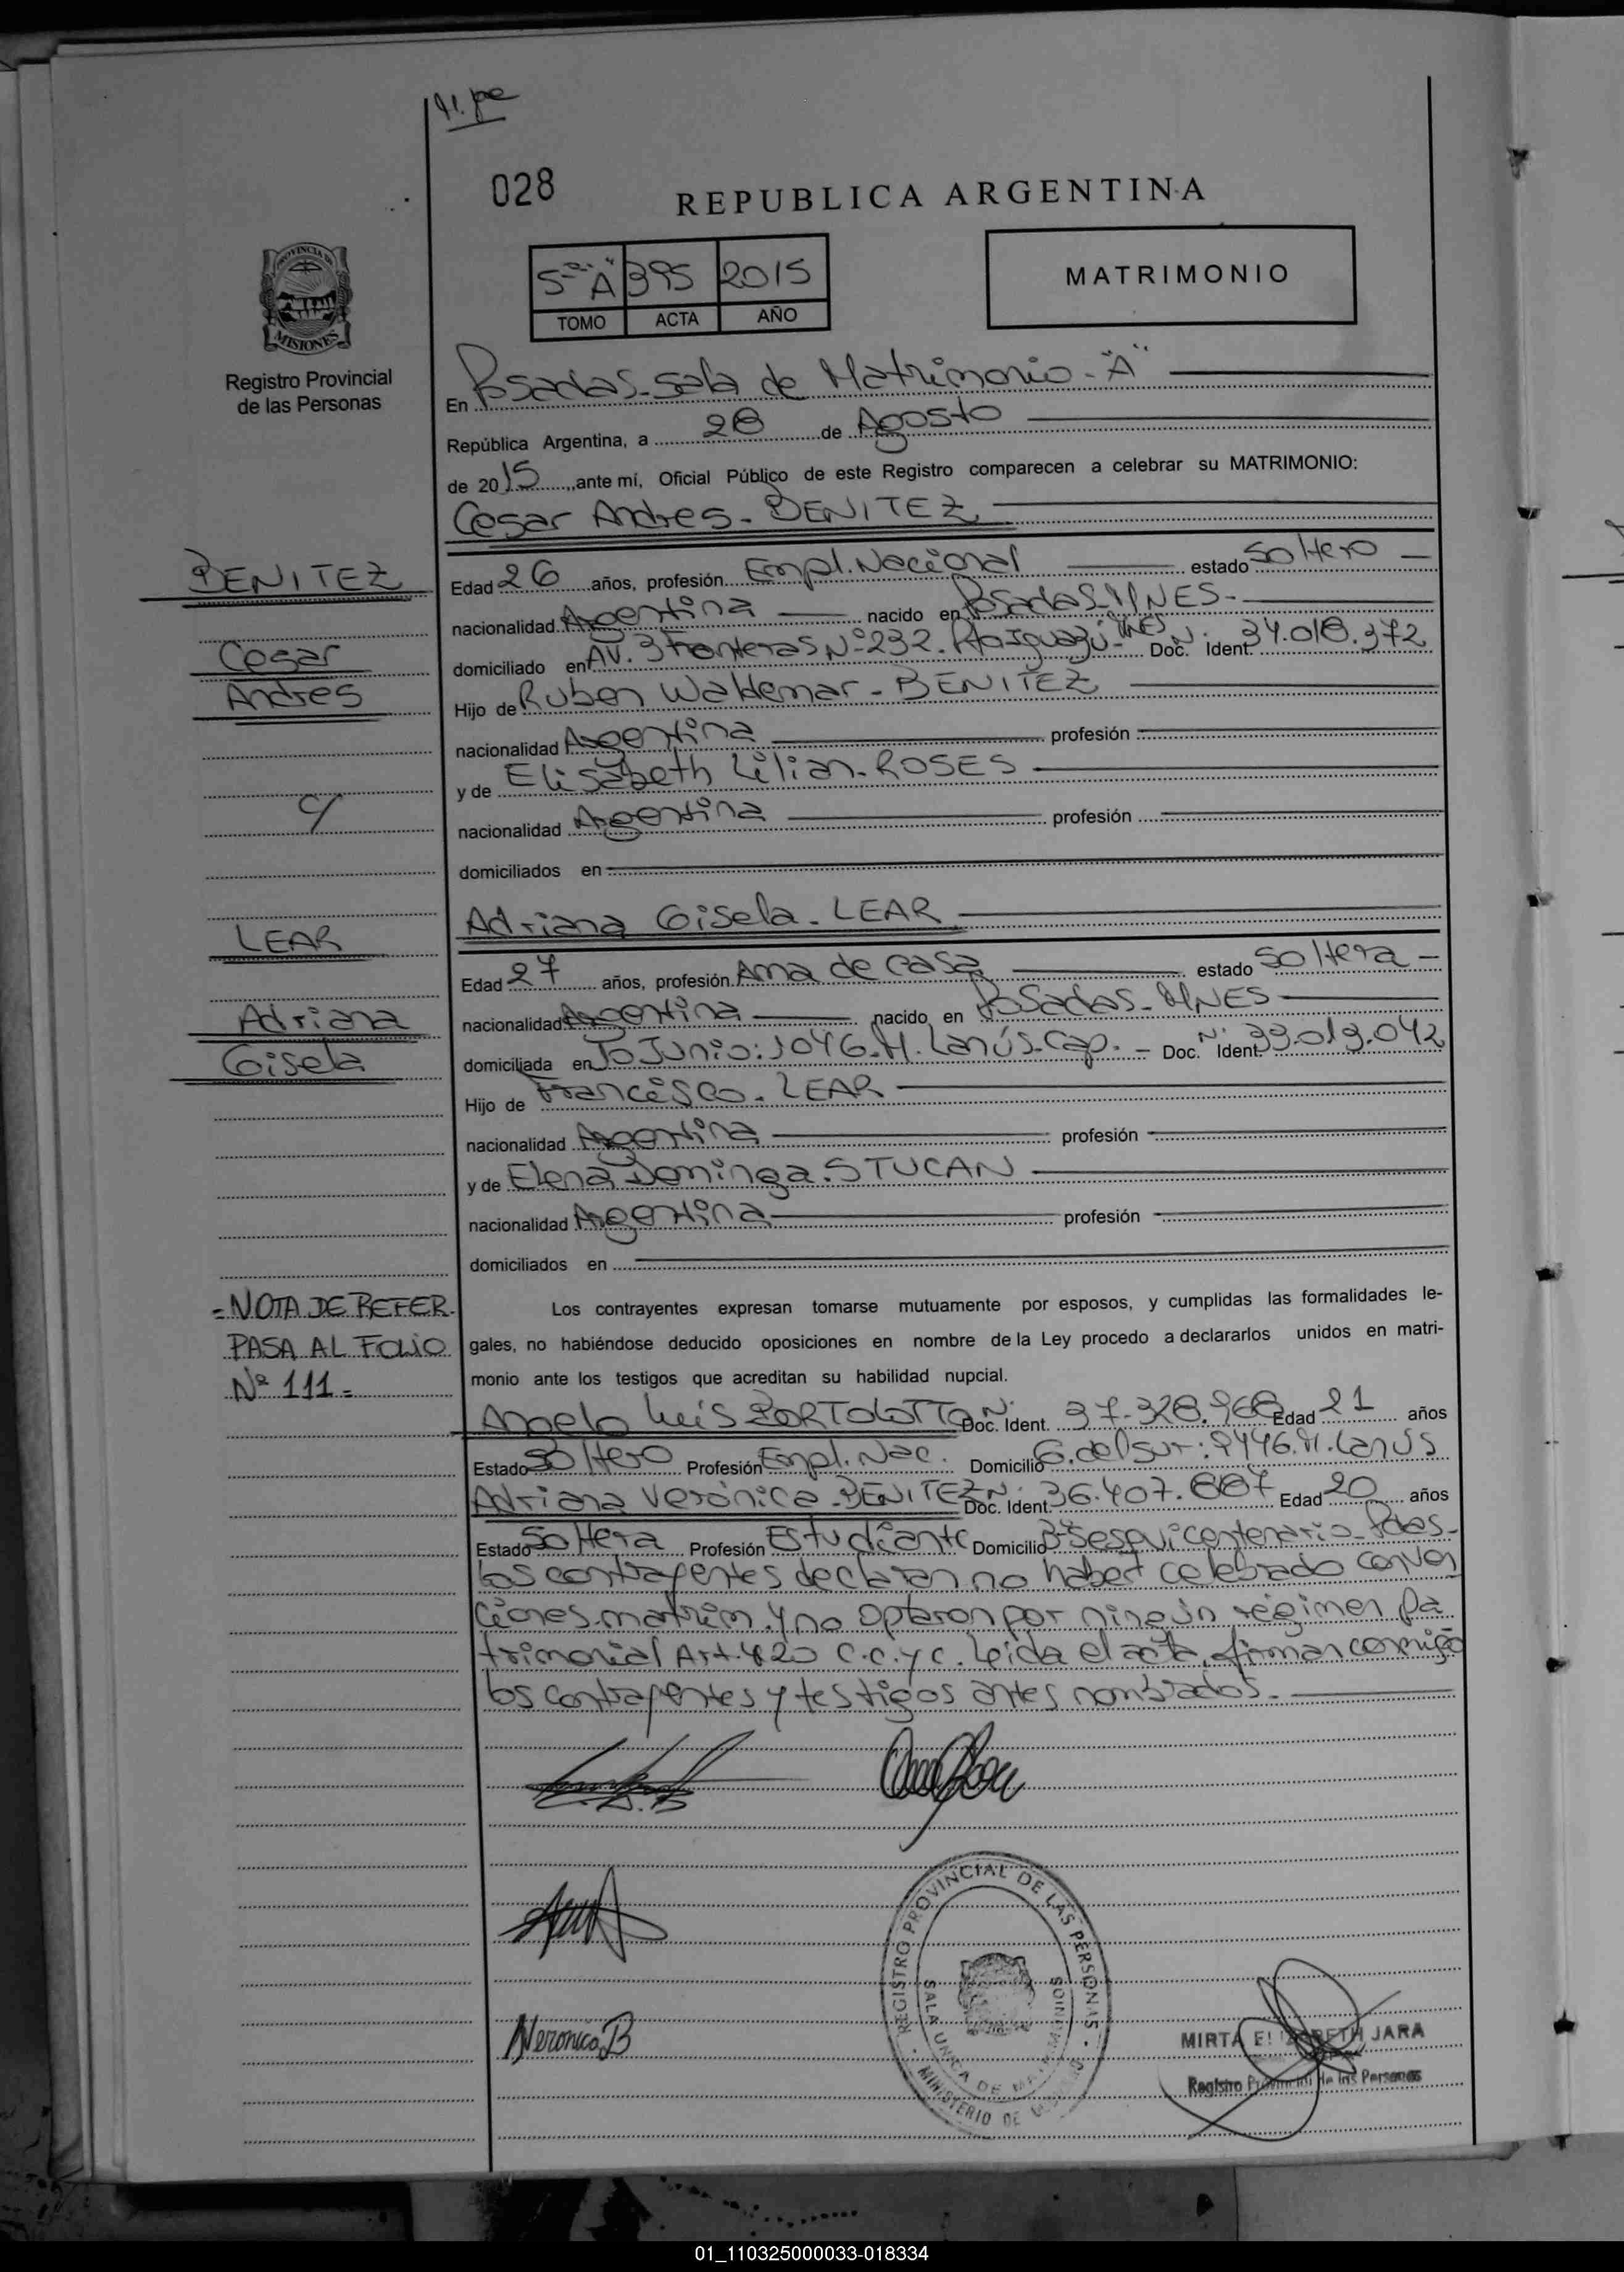 028
REPUBLICA ARGENTINA
PROVINCIA DE
MISIONES
Registro Provincial
de las Personas
5to "A" 395 2015
TOMO ACTA AÑO
MATRIMONIO
En Posadas-sala de Matrimonio-"A"
República Argentina, a 28 de Agosto
de 2015, ante mí, Oficial Público de este Registro comparecen a celebrar su MATRIMONIO:
Cesar Andres-BENITEZ
BENITEZ
Cesar
Andres
c/
LEAR
Adriana
Gisela
=NOTA DE REFER.
PASA AL FOLIO
Nº 111=
Edad 26 años, profesión Empl. Nacional estado soltero
nacionalidad Argentina nacido en Posadas-MNES-
domiciliado en AV. 3 Fronteras Nº232. Pto Iguazú-MNES Doc. Ident. Nº 34.018.372
Hijo de Ruben Waldemar-BENITEZ
nacionalidad Argentina profesión
y de Elisabeth Lilian-ROSES
nacionalidad Argentina profesión
domiciliados en
Adriana Gisela-LEAR
Edad 27 años, profesión Ama de casa estado soltera
nacionalidad Argentina nacido en Posadas-MNES
domiciliada en Jo Junio:1046.M.Lanús-Cap.- Doc. Ident. Nº 33.019.042
Hijo de Francisco-LEAR
nacionalidad Argentina profesión
y de Elena Dominga.STUCAN
nacionalidad Argentina profesión
domiciliados en
Los contrayentes expresan tomarse mutuamente por esposos, y cumplidas las formalidades le-
gales, no habiéndose deducido oposiciones en nombre de la Ley procedo a declararlos unidos en matri-
monio ante los testigos que acreditan su habilidad nupcial.
Angelo Luis BORTOLOTTO Nº Doc. Ident. 37.328.968 Edad 21 años
Estado soltero Profesión Empl. Nac. Domicilio G.del sur:9446.M.Lanús
Adriana Verónica-BENITEZ Nº Doc. Ident. 36.407.887 Edad 20 años
Estado soltera Profesión Estudiante Domicilio Bº sesquicentenario-Pdas-
los contrayentes declaran no haber celebrado conven
ciones matrim. y no optaron por ningún régimen pa
trimonial Art.420 C.C.y C. Leída el acta, firman conmigo
los contrayentes y testigos antes nombrados.-
Veronica B
REGISTRO PROVINCIAL DE LAS PERSONAS
SALA UNICA DE MATRIMONIOS
MINISTERIO DE
MIRTA ELIZABETH JARA
Registro Provincial de las Personas
01_110325000033-018334